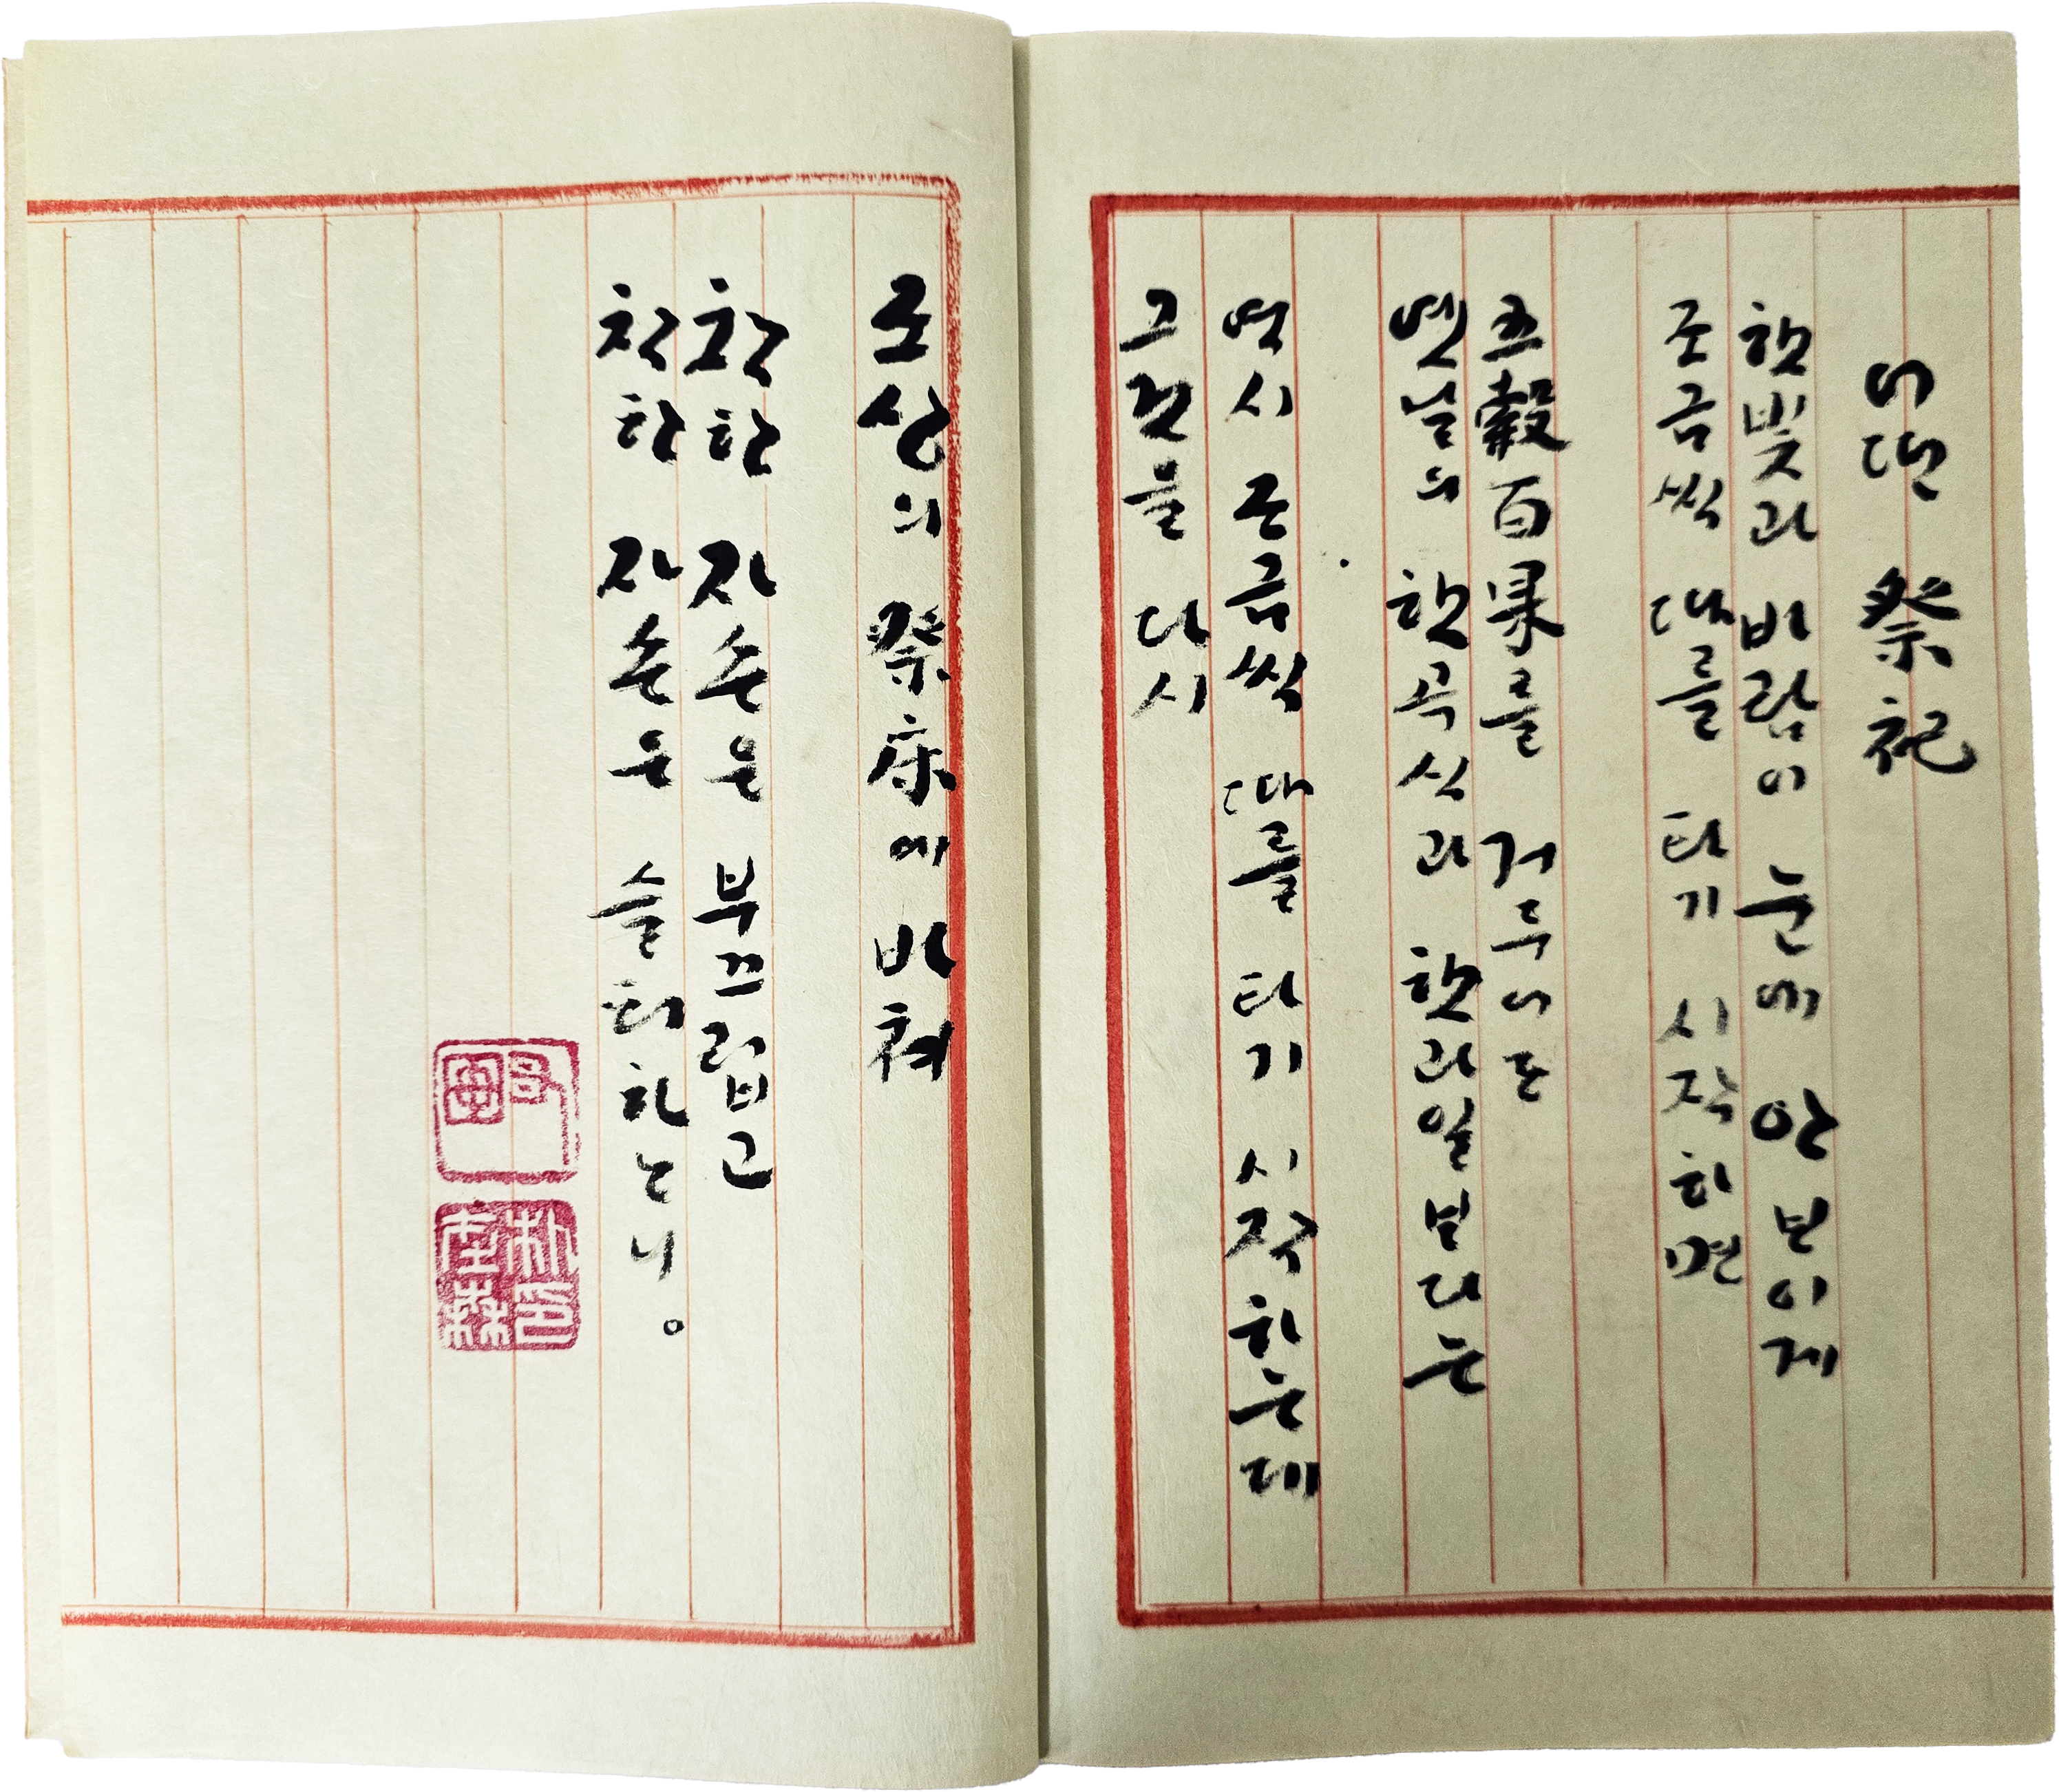 어떤 祭祀
햇빛과 바람이 눈에 안 보이게
조금씩 때를 타기 시작하면
五穀百果를 거두어도
옛날의 햇곡식과 햇과일보다는
역시 조금씩 때를 타기 시작하는데
그것을 다시
조상의 祭床에 바쳐
착한 자손은 부끄럽고
착한 자손은 슬퍼하느니。
朴印在森